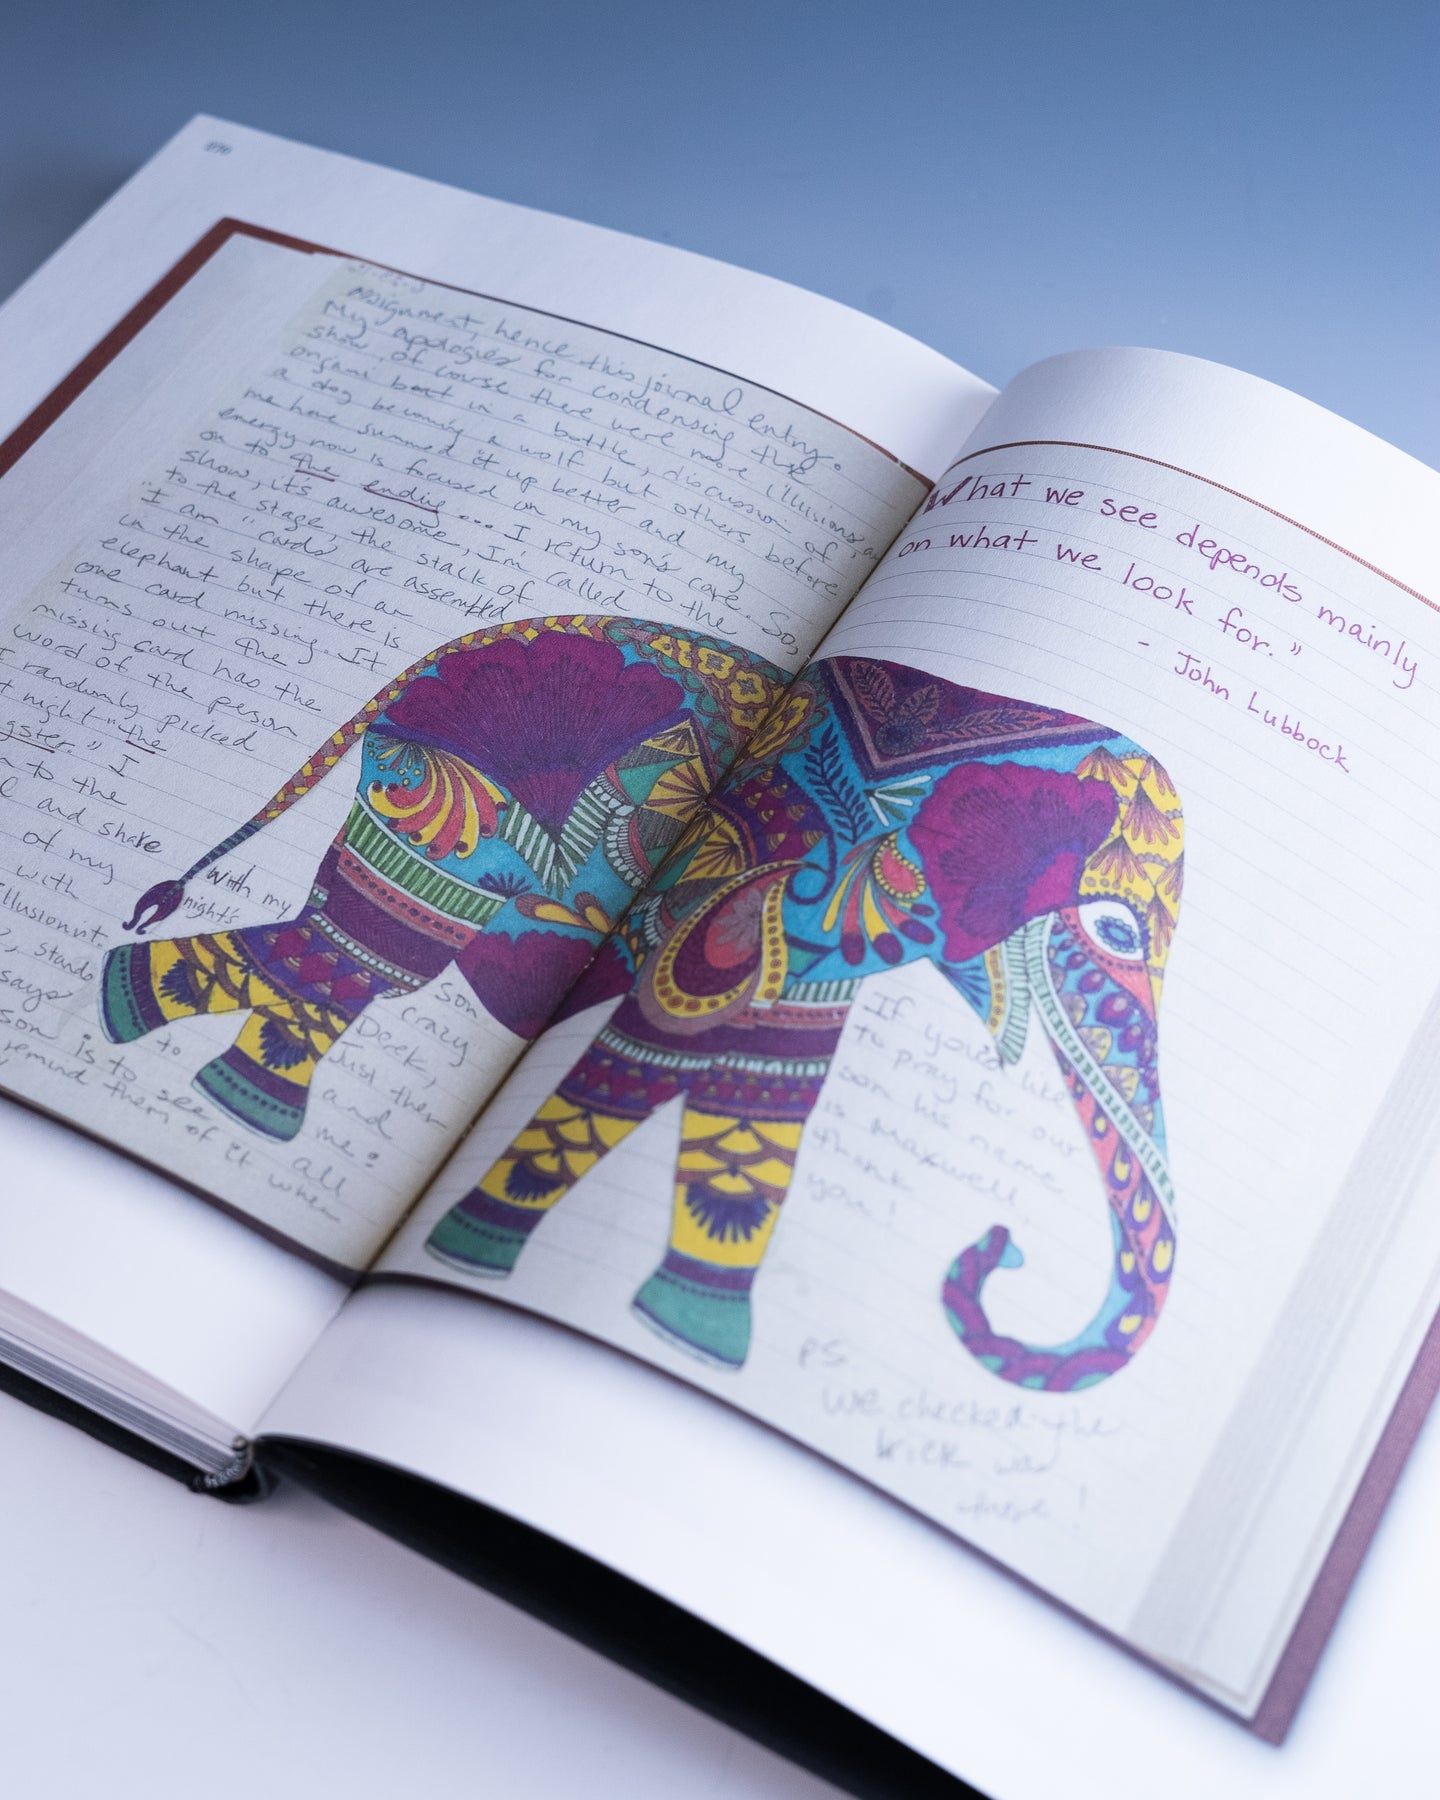 assignment, hence this journal entry.
My apologies for condensing the
show, of course there were more illusions,
origami boat in a bottle, discussion of
a dog becoming a wolf but others before
me have summed it up better and my
energy now is focused on my son's care. So,
on to the ending ... I return to the
show, it's awesome, I'm called
to the stage, the stack of
"I am" cards are assembled
in the shape of an
elephant but there is
one card missing. It
turns out the
missing card has the
word of the person
I randomly picked
t night - the
gster." I
to the
and share
of my
with
with my
night's
illusionist.
stands
says
son is to see
remind them of it when
to
all
son
crazy
Derek,
Just then
and
me:
What we see depends mainly
on what we look for."
- John Lubbock
If you'd like
to pray for our
son his name
is Maxwell,
thank
you!
PS.
We checked the
trick was